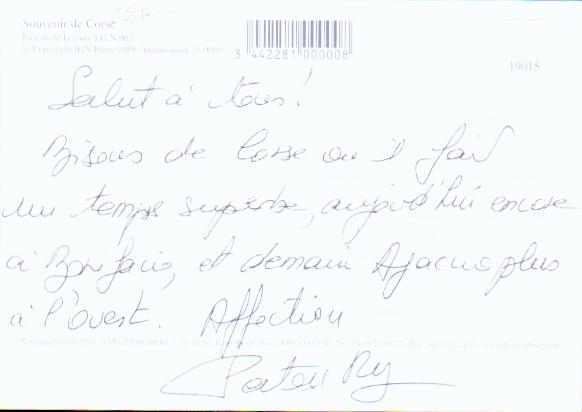 Souvenir de Corse
Extrait de la carte I.G.N 901
© Copyright IGN Paris 1989. Autorisation 11.9001
3 442281 000008
19015
Salut à tous!
Bisous de Corse ou il fait
un temps superbe, aujourd'hui encore
à Bonifacio, et demain Ajaccio plus
à l'ouest. Affection
Reproduction interdite - SARL DESJOBERT